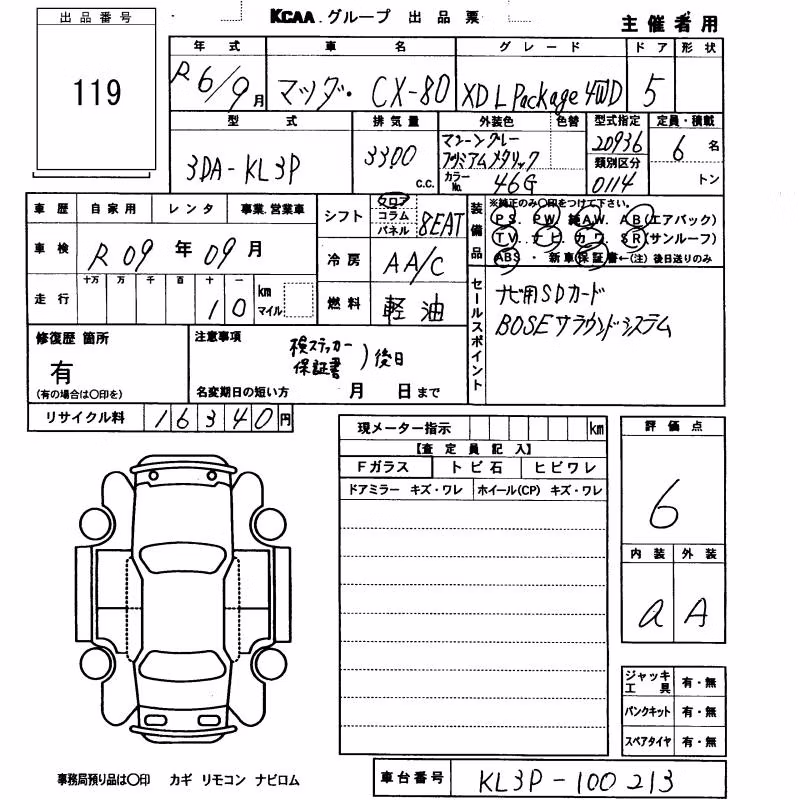 出品番号
119
KCAA.グループ 出品票
主催者用
年式 車名 グレード ドア 形状
R6/9月 マツダ・CX-80 XD L Package 4WD 5
型式 排気量 外装色 色替 型式指定 定員・積載
3DA-KL3P 3300 c.c. マシーングレー プレミアムメタリック 20936 6名
カラーNo. 46G 類別区分 0114 トン
車歴 自家用 レンタ 事業.営業車
シフト フロア コラム パネル 8EAT
装備品 ※純正のみ〇印をつけて下さい。
PS. PW. AW. AB(エアバック)
TV. ナビ. カワ. SR(サンルーフ)
ABS ・ 新車保証書←(注)後日送りのみ
車検 R09年09月
冷房 AA/C
走行 十万 万 千 百 十 一
10 km マイル
燃料 軽油
セールスポイント
ナビ用SDカード
BOSEサラウンドシステム
修復歴 箇所
有
(有の場合は〇印を)
注意事項
検ステッカー
保証書
)後日
名変期日の短い方 月 日まで
リサイクル料 16340円
現メーター指示 km
【査定員記入】
Fガラス トビ石 ヒビワレ
ドアミラー キズ・ワレ ホイール(CP) キズ・ワレ
評価点
6
内装 外装
a A
ジャッキ工具 有・無
パンクキット 有・無
スペアタイヤ 有・無
事務局預り品は〇印 カギ リモコン ナビロム
車台番号 KL3P-100213